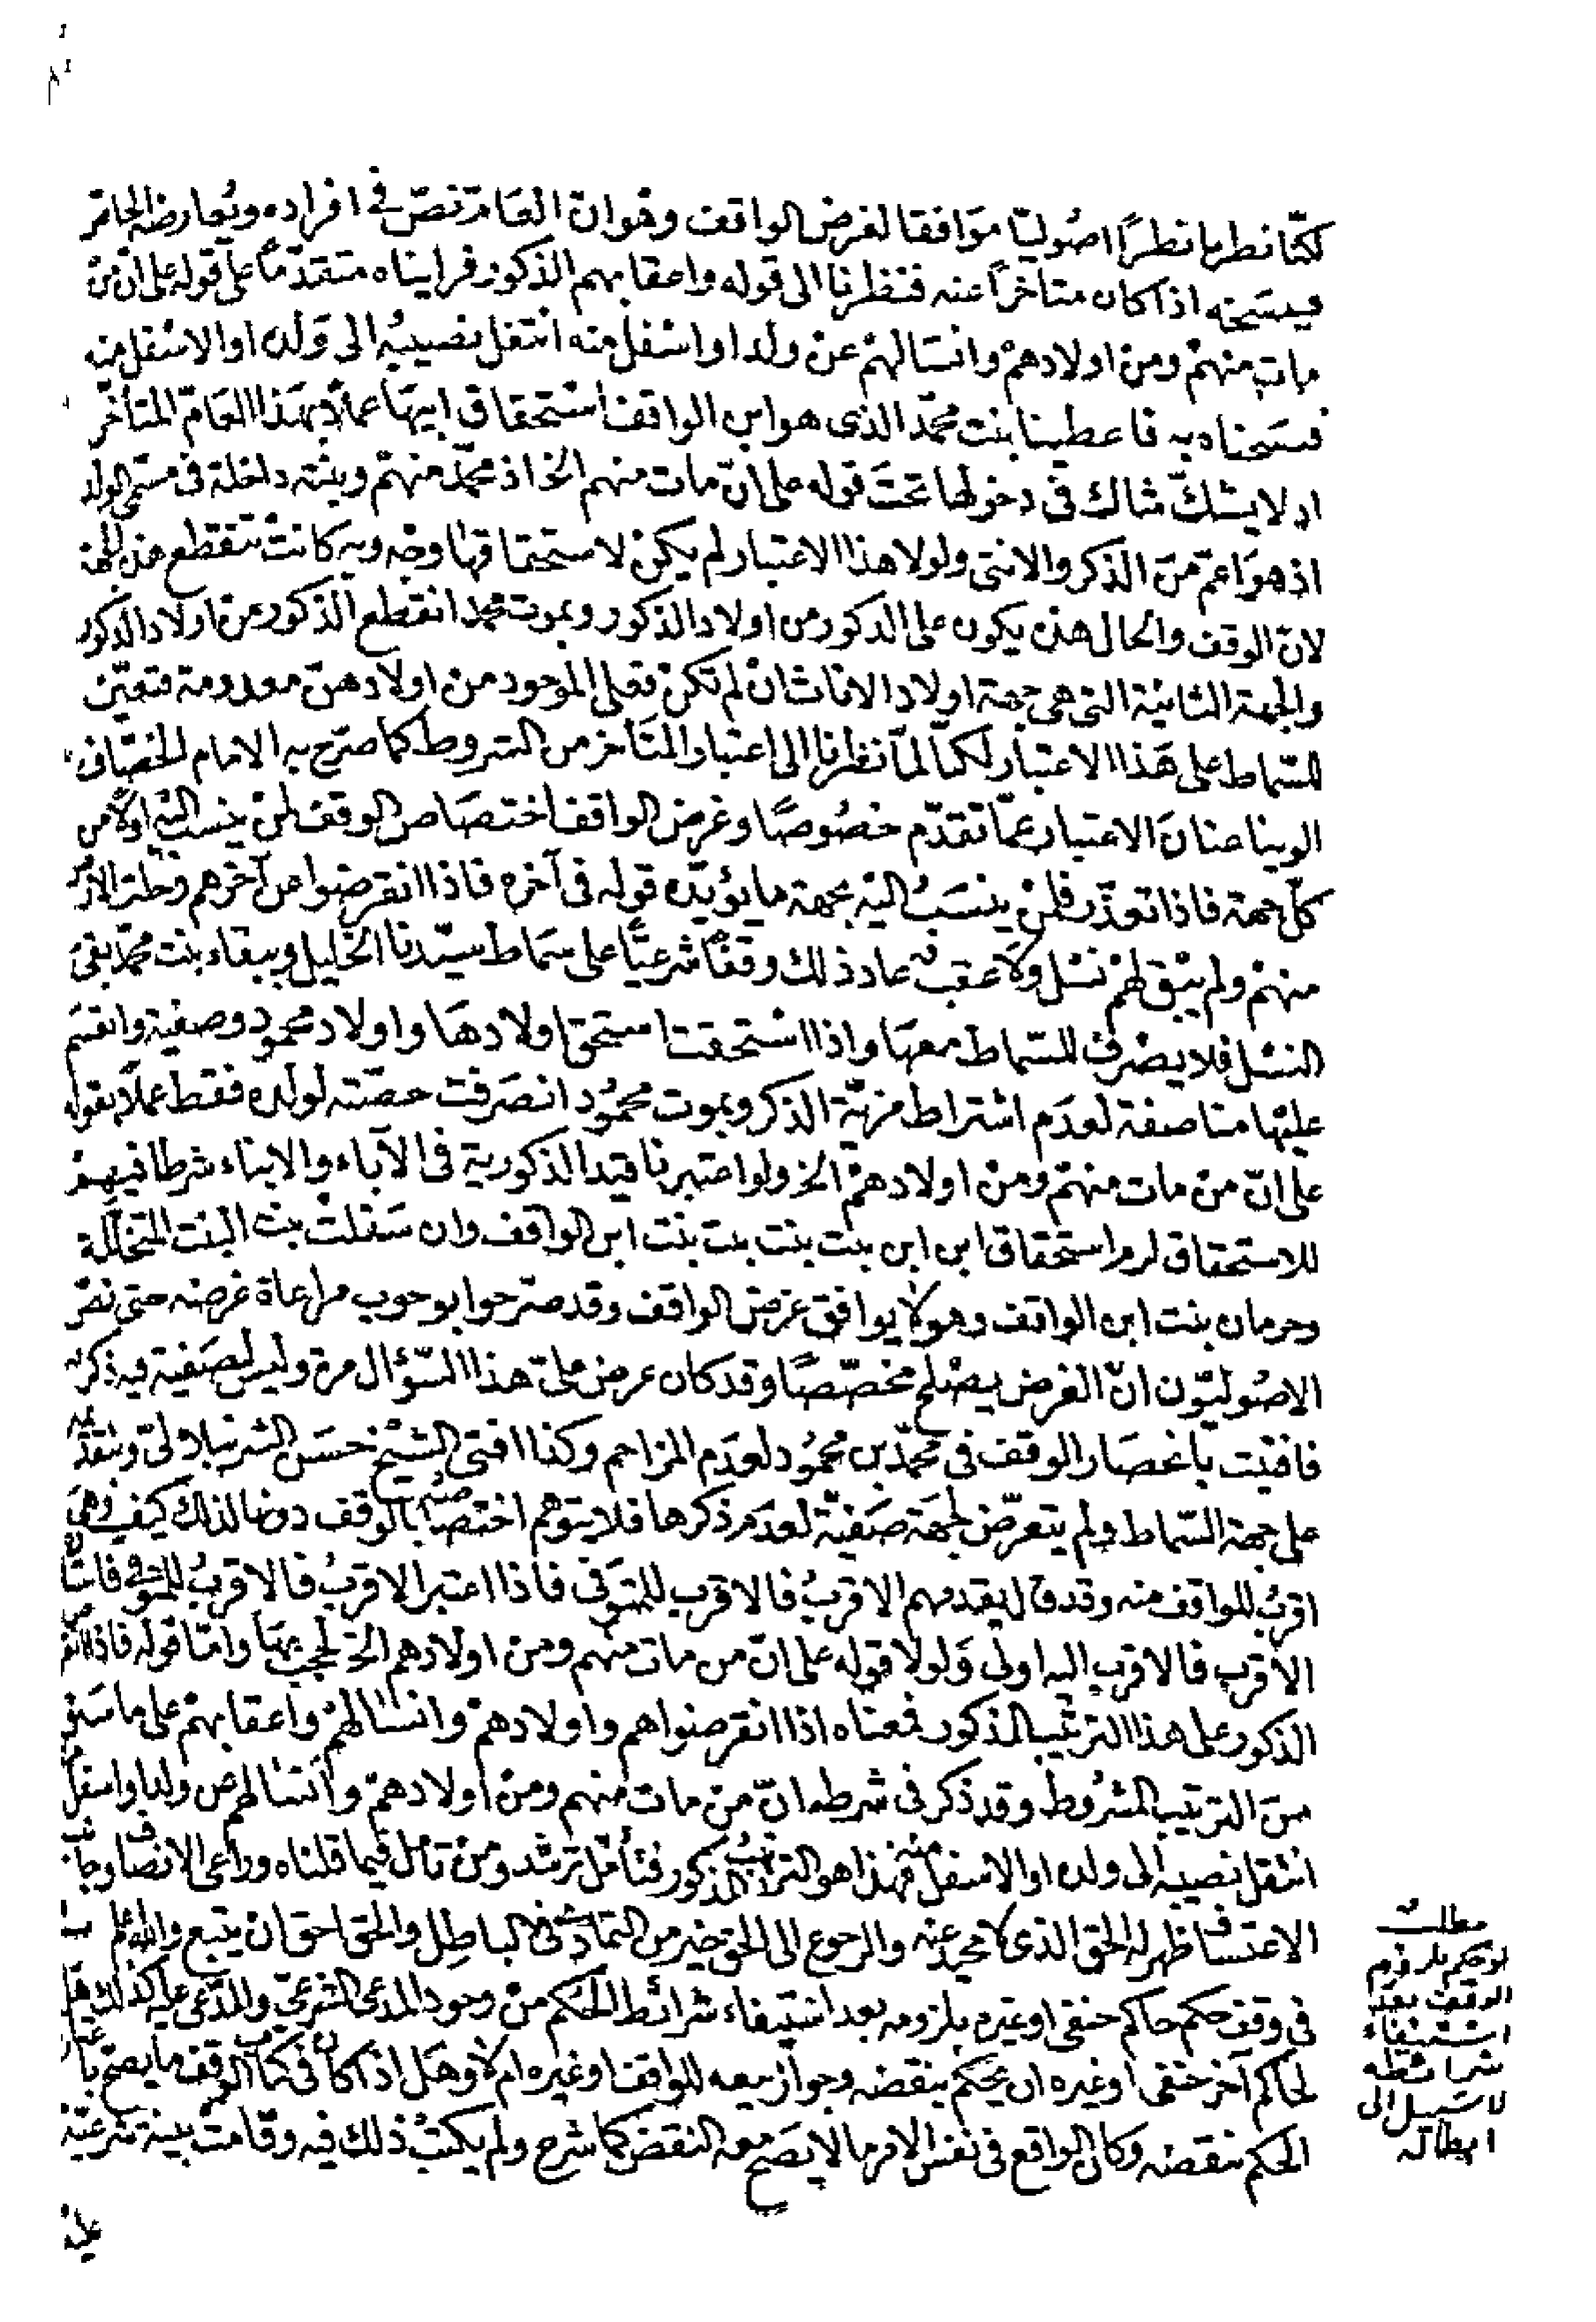 لكنّا نظرنا نظرًا اصوليّا موافقا لغرض الواقف وهوان العامّ نصّ في افراده ويعارض الخاصّ
فينسخه اذا كان متاخرًا عنه فنظرنا الى قوله واعقابهم الذكور فرايناه متقدّمًا على قوله على انّ من
مات منهم ومن اولادهم وانسالهم عن ولد او اسفل منه انتقل نصيبه الى ولده او الاسفل منه
فنسخناه به فاعطينا بنت محمّد الذى هو ابن الواقف استحقاق ابيها عملاً بهذا العامّ المتأخر
اذ لا يشكّ شاك في دخولها تحت قوله على انّ من مات منهم الخ اذ محمّد منهم وبنته داخلة في مسمّى الولد
اذ هو اعمّ من الذكر والانثى ولولا هذا الاعتبار لم يكن لاستحقاقها وجه وبه كانت تنقطع هذه الجهة
لانّ الوقف والحال هذه يكون على الذكور من اولاد الذكور وبموت محمد انقطع الذكور من اولاد الذكور
والجهة الثانية التى هى جهة اولاد الاناث ان لم تكن فعلى الموجود من اولادهنّ معدومة فتعيّن
للسّماط على هذا الاعتبار لكنّا لمّا نظرنا الى اعتبار المتأخر من الشروط كما صرّح به الامام الخصّاف
الوينا عنان الاعتبار عمّا تقدّم خصوصًا وغرض الواقف اختصاص الوقف لمن ينسب اليه اولاً من
كلّ جهة فاذا تعذّر فلمن ينسب اليه بجهة ما يؤيّده قوله في آخره فاذا انقرضوا عن آخرهم وخلت الارض
منهم ولم يبق لهم نسل ولا عقب عاد ذلك وقفًا شرعيًّا على سماط سيّدنا الخليل وببقاء بنت محمّد بقى
النسل فلا يصرف للسّماط معها واذا استحقت استحق اولادها واولاد محمود وصفية وانقسم
عليهما مناصفة لعدم اشتراط مزيّة الذكر وبموت محمود انصرفت حصّته لولده فقط عملاً بقوله
على انّ من مات منهم ومن اولادهم الخ ولو اعتبرنا قيد الذكورية في الآباء والابناء شرطا فيهم
للاستحقاق لزم استحقاق ابن ابن بنت بنت بنت بنت ابن الواقف وان سفلت بنت البنت المتخلّلة
وحرمان بنت ابن الواقف وهو لا يوافق غرض الواقف وقد صرّحوا بوجوب مراعاة غرضه حتى نصّ
الاصوليّون انّ الغرض يصلح مخصّصًا وقد كان عرض علىّ هذا السّؤال مرة وليس لصفية فيه ذكر
فافتيت بانحصار الوقف في محمّد بن محمود لعدم المزاحم وكذا افتى الشيخ حسن الشرنبلالى وبتقدّمه
على جهة السّماط ولم يتعرّض لجهة صفيّة لعدم ذكرها فلا يتوهّم اختصاصه بالوقف دونها لذلك كيف وهى
اقرب للواقف منه وقد قال يقدمهم الاقرب فالاقرب للمتوفى فاذا اعتبر الاقرب فالاقرب للمتوفى فاشتراط
الاقرب فالاقرب اليه اولى ولولا قوله على انّ من مات منهم ومن اولادهم الخ لحجب بها وامّا قوله فاذا انقرض
الذكور على هذا الترتيب المذكور فمعناه اذا انقرضوا هم واولادهم وانسالهم واعقابهم على ما سبق
من الترتيب المشروط وقد ذكر في شرطه انّ من مات منهم ومن اولادهم وانسالهم عن ولد او اسفل منه
انتقل نصيبه الى ولده او الاسفل منه فهذا هو الترتيب المذكور فتأمّل ترشد ومن تامّل فيما قلناه وراعى الانصاف وجانب
الاعتساف ظهر له الحق الذى لا محيد عنه والرجوع الى الحق خير من التمادى في الباطل والحق احق ان يتبع والله اعلم
في وقف حكم حاكم حنفى او غيره بلزومه بعد استيفاء شرائط الحكم من وجود المدعى الشرعىّ والمدّعى عليه كذلك هل
لحاكم آخر حنفى او غيره ان يحكم بنقضه وجواز بيعه للواقف او غيره ام لا وهل اذا كان في كتاب الوقف ما يصحّ باعتباره
الحكم بنقضه وكان الواقع في نفس الامر ما لا يصحّ معه النقض كما شرح ولم يكتب ذلك فيه وقامت بينة شرعيّة
عليه
مطلب
لو حكم بلزوم
الوقف بعد
استيفاء
شرائطه
لا سبيل الى
ابطاله